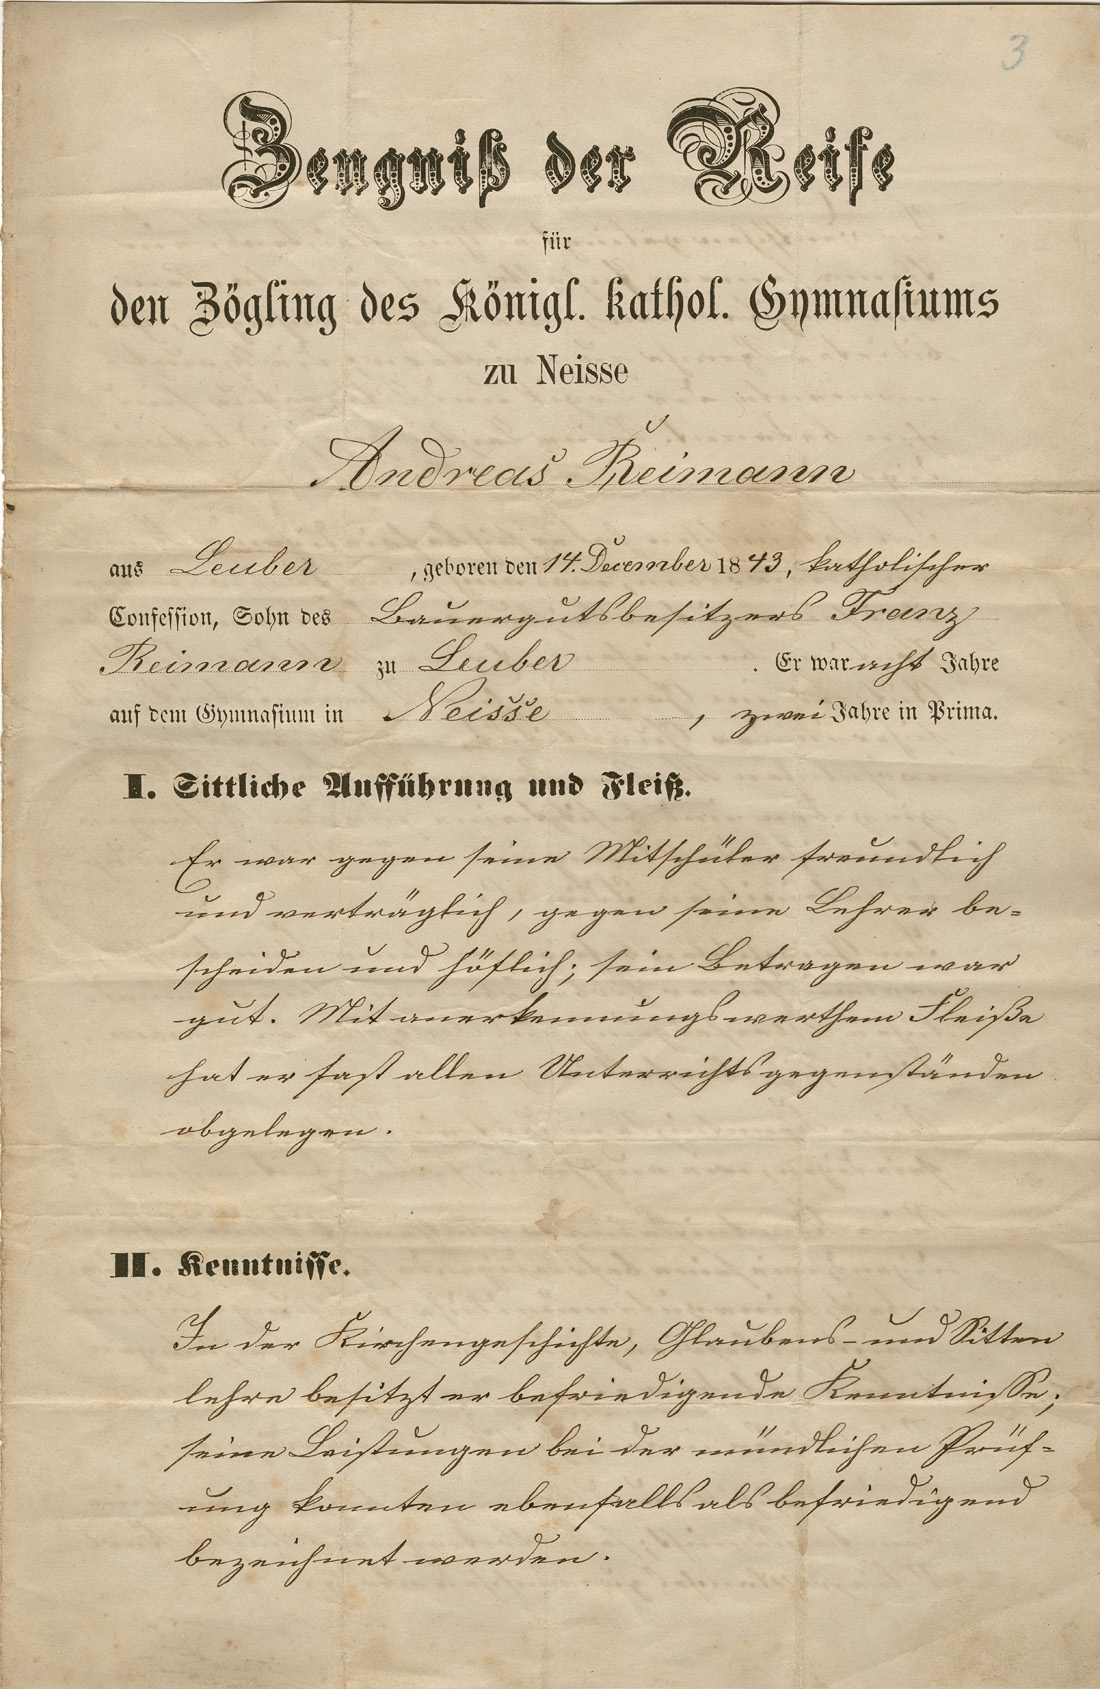 3
Zeugniß der Reife
für
den Zögling des Königl. kathol. Gymnasiums
zu Neisse
Andreas Reimann
aus Leuber, geboren den 14. December 1843, katholischer
Confession, Sohn des Bauergutsbesitzers Franz
Reimann zu Leuber. Er war acht Jahre
auf dem Gymnasium in Neisse, zwei Jahre in Prima.
I. Sittliche Aufführung und Fleiß.
Er war gegen seine Mitschüler freundlich
und verträglich, gegen seine Lehrer be-
scheiden und höflich; sein Betragen war
gut. Mit anerkennungswerthem Fleiße
hat er fast allen Unterrichtsgegenständen
obgelegen.
II. Kenntnisse.
In der Kirchengeschichte, Glaubens- und Sitten
lehre besitzt er befriedigende Kenntnisse;
seine Leistungen bei der mündlichen Prüf-
ung konnten ebenfalls als befriedigend
bezeichnet werden.